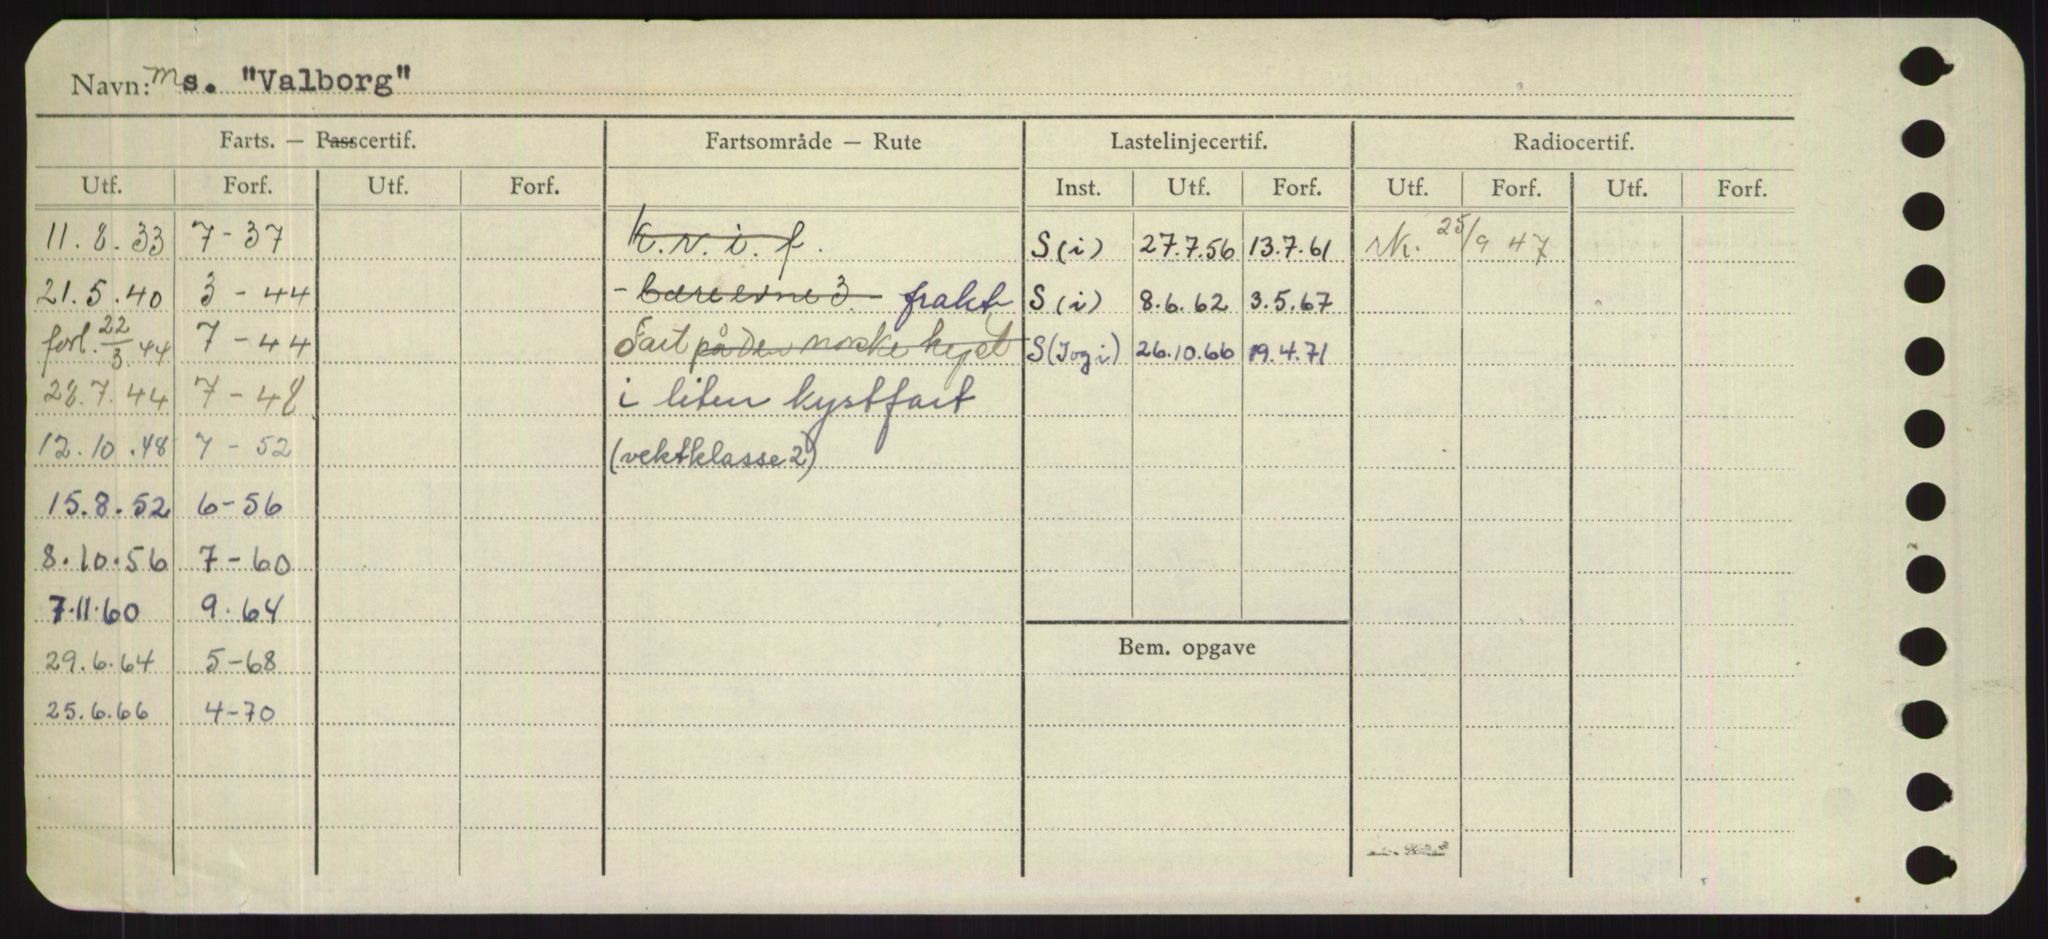 Navn: Ms. "Valborg"
Farts. — Passcertif. Fartsområde — Rute Lastelinjecertif. Radiocertif.
Utf. Forf. Utf. Forf. Inst. Utf. Forf. Utf. Forf. Utf. Forf.
11.8.33 7-37 k.v.i.f. S(i) 27.7.56 13.7.61 rk. 25/9 47
21.5.40 3-44 - bæreevne 3 frakt S(i) 8.6.62 3.5.67
forl. 22/3.44 7-44 Fart på den norske kyst S(Iogi) 26.10.66 19.4.71
28.7.44 7-48 i liten kystfart
12.10.48 7-52 (vektklasse 2)
15.8.52 6-56
8.10.56 7-60
7.11.60 9.64
Bem. opgave
29.6.64 5-68
25.6.66 4-70